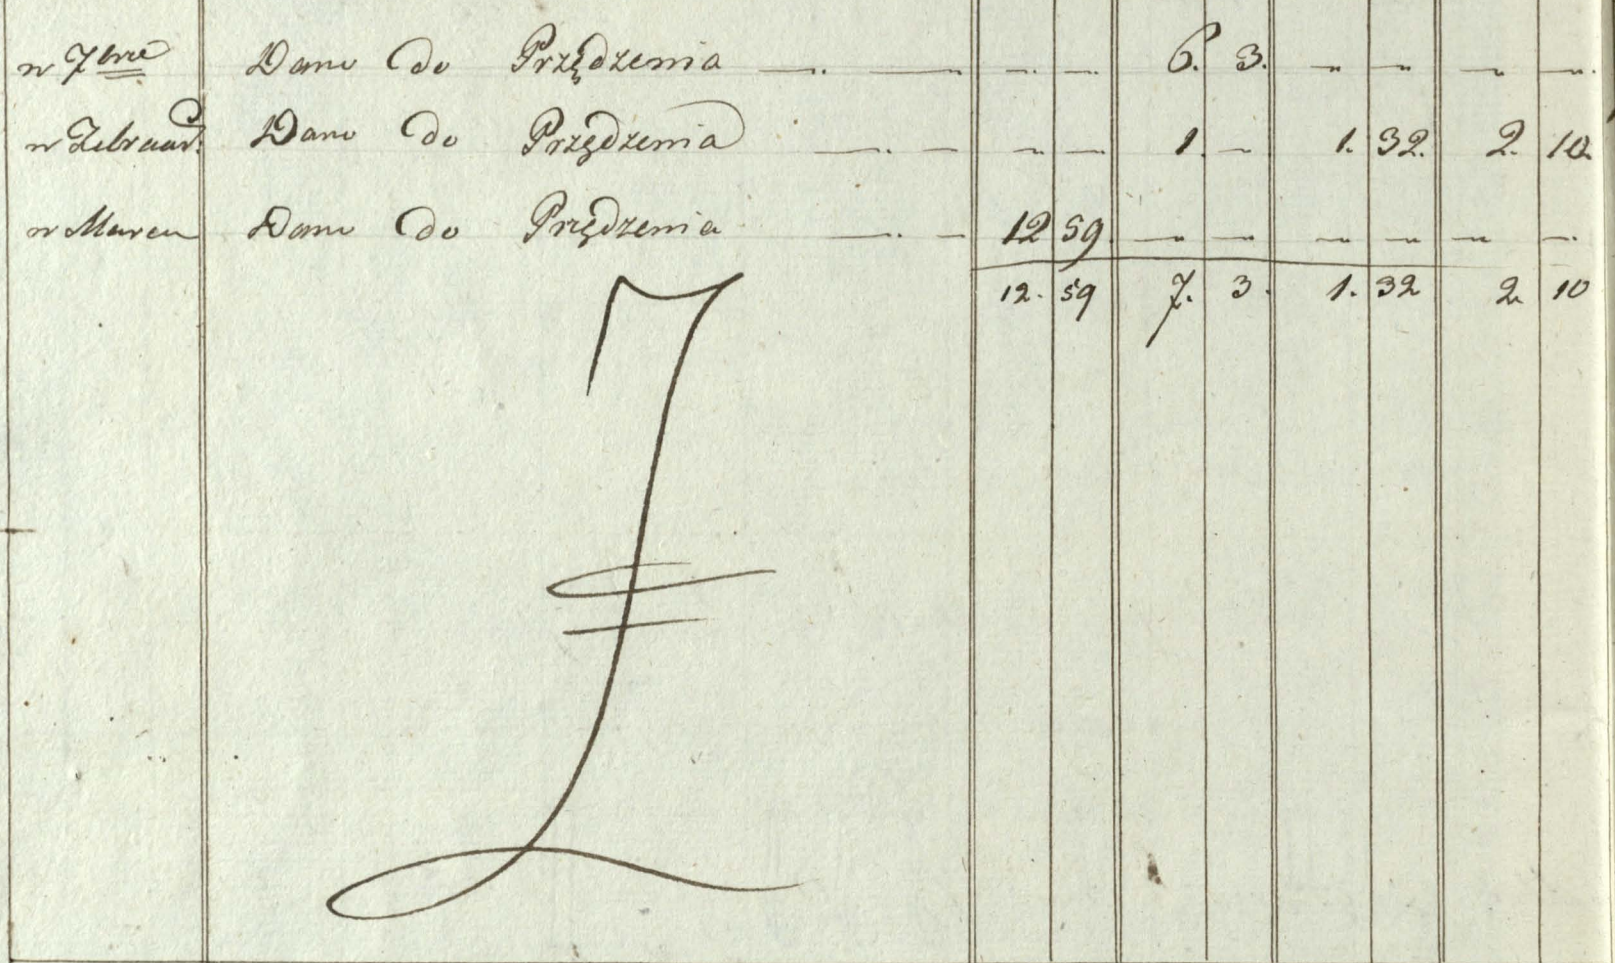 w 7brie Dano do Przędzenia — — — — 6. 3. — — — —
w Februar: Dano do Przędzenia — — — — 1. — 1. 32. 2. 10.
w Marcu Dano do Przędzenia — — 12 59. — — — — — —
12. 59 7. 3. 1. 32 2 10